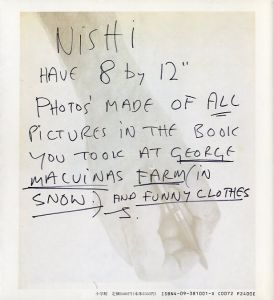 NISHI
HAVE 8 by 12"
PHOTOS' MADE OF ALL
PICTURES IN THE BOOK
YOU TOOK AT GEORGE
MACUINAS FARM (IN
SNOW.) AND FUNNY CLOTHES
ISBN4-09-381001-X C0072 P2400E